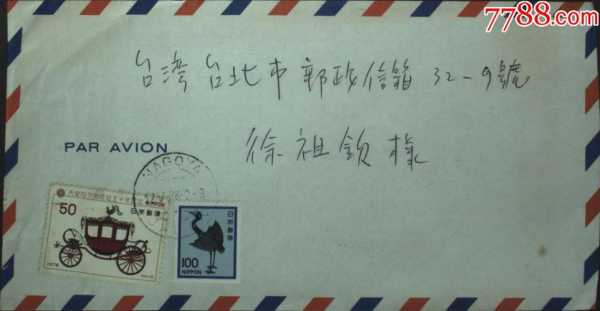 7788.com
台湾台北市郵政信箱 32-9號
徐祖欽様
PAR AVION
NAGOYA
50
日本郵便
日本郵便
100
NIPPON